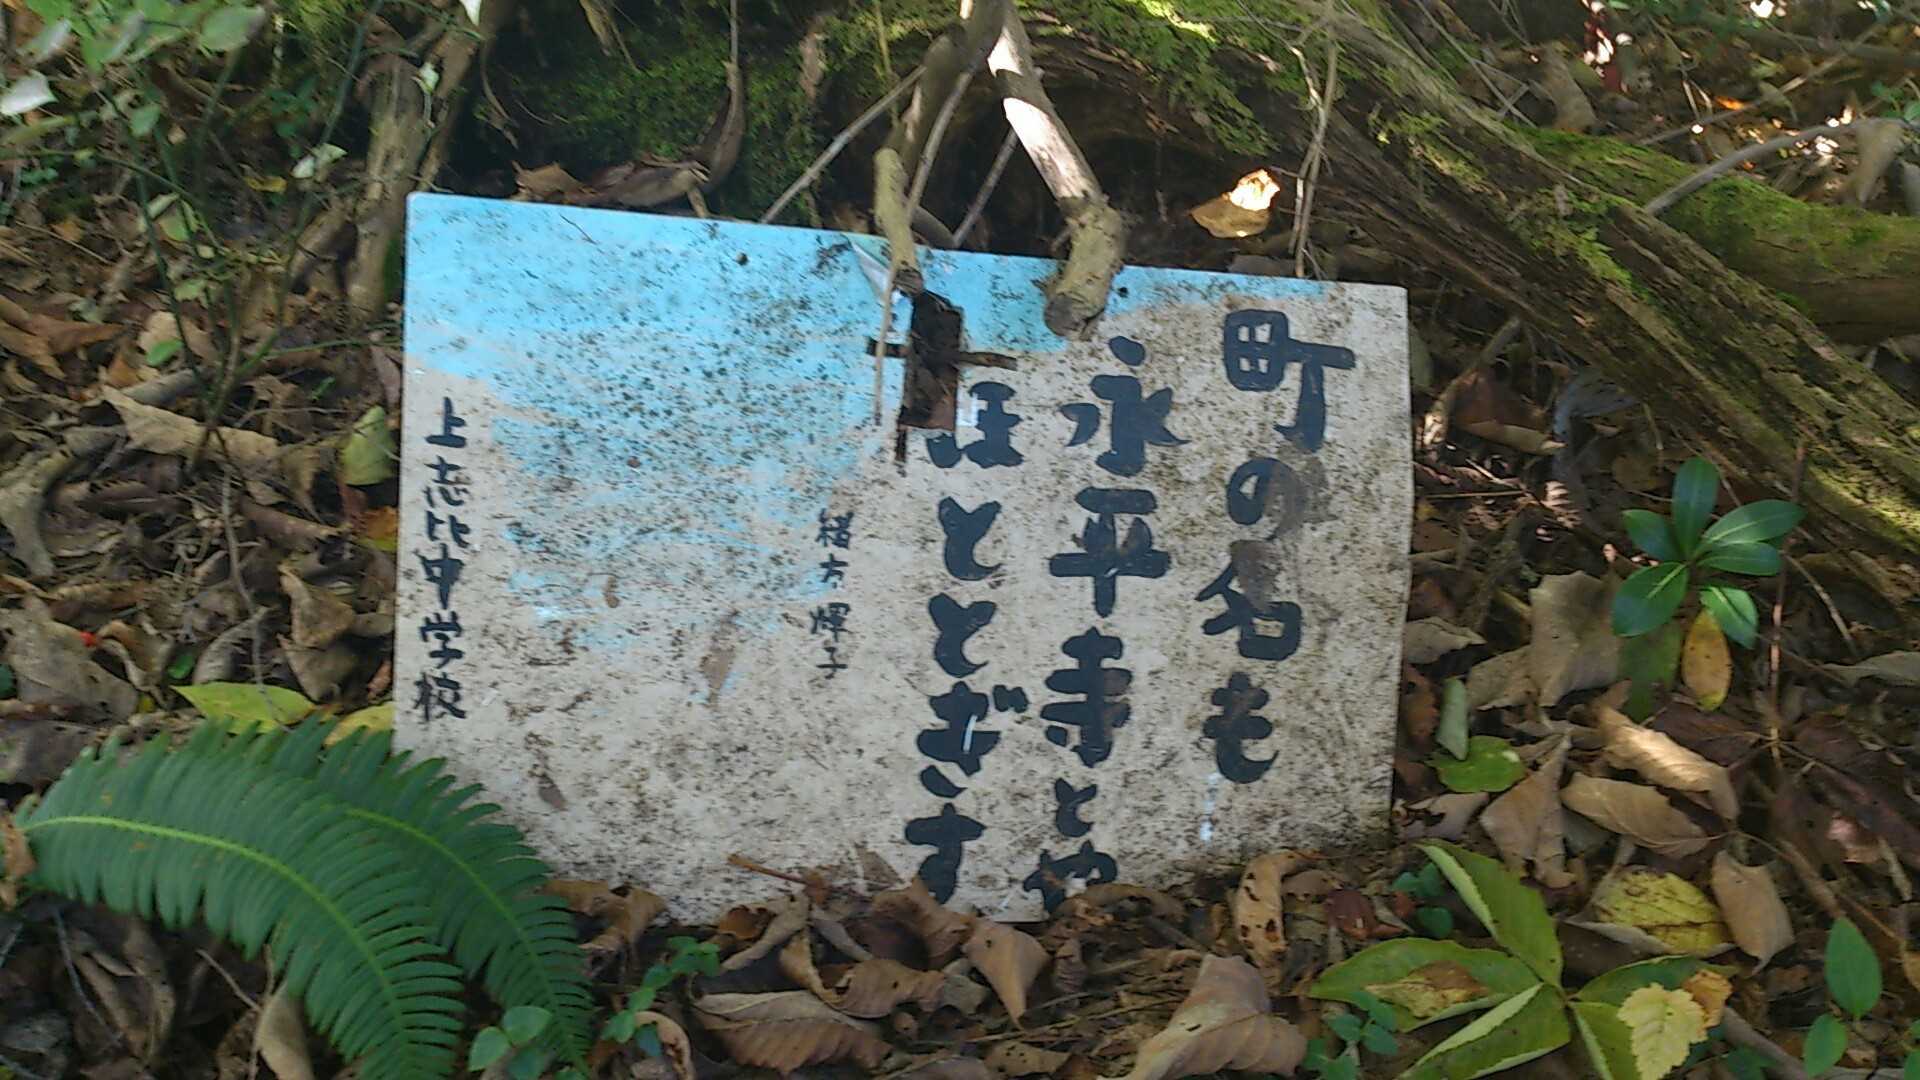 町の名も
永平寺とや
ほととぎす
緒方輝子
上志比中学校